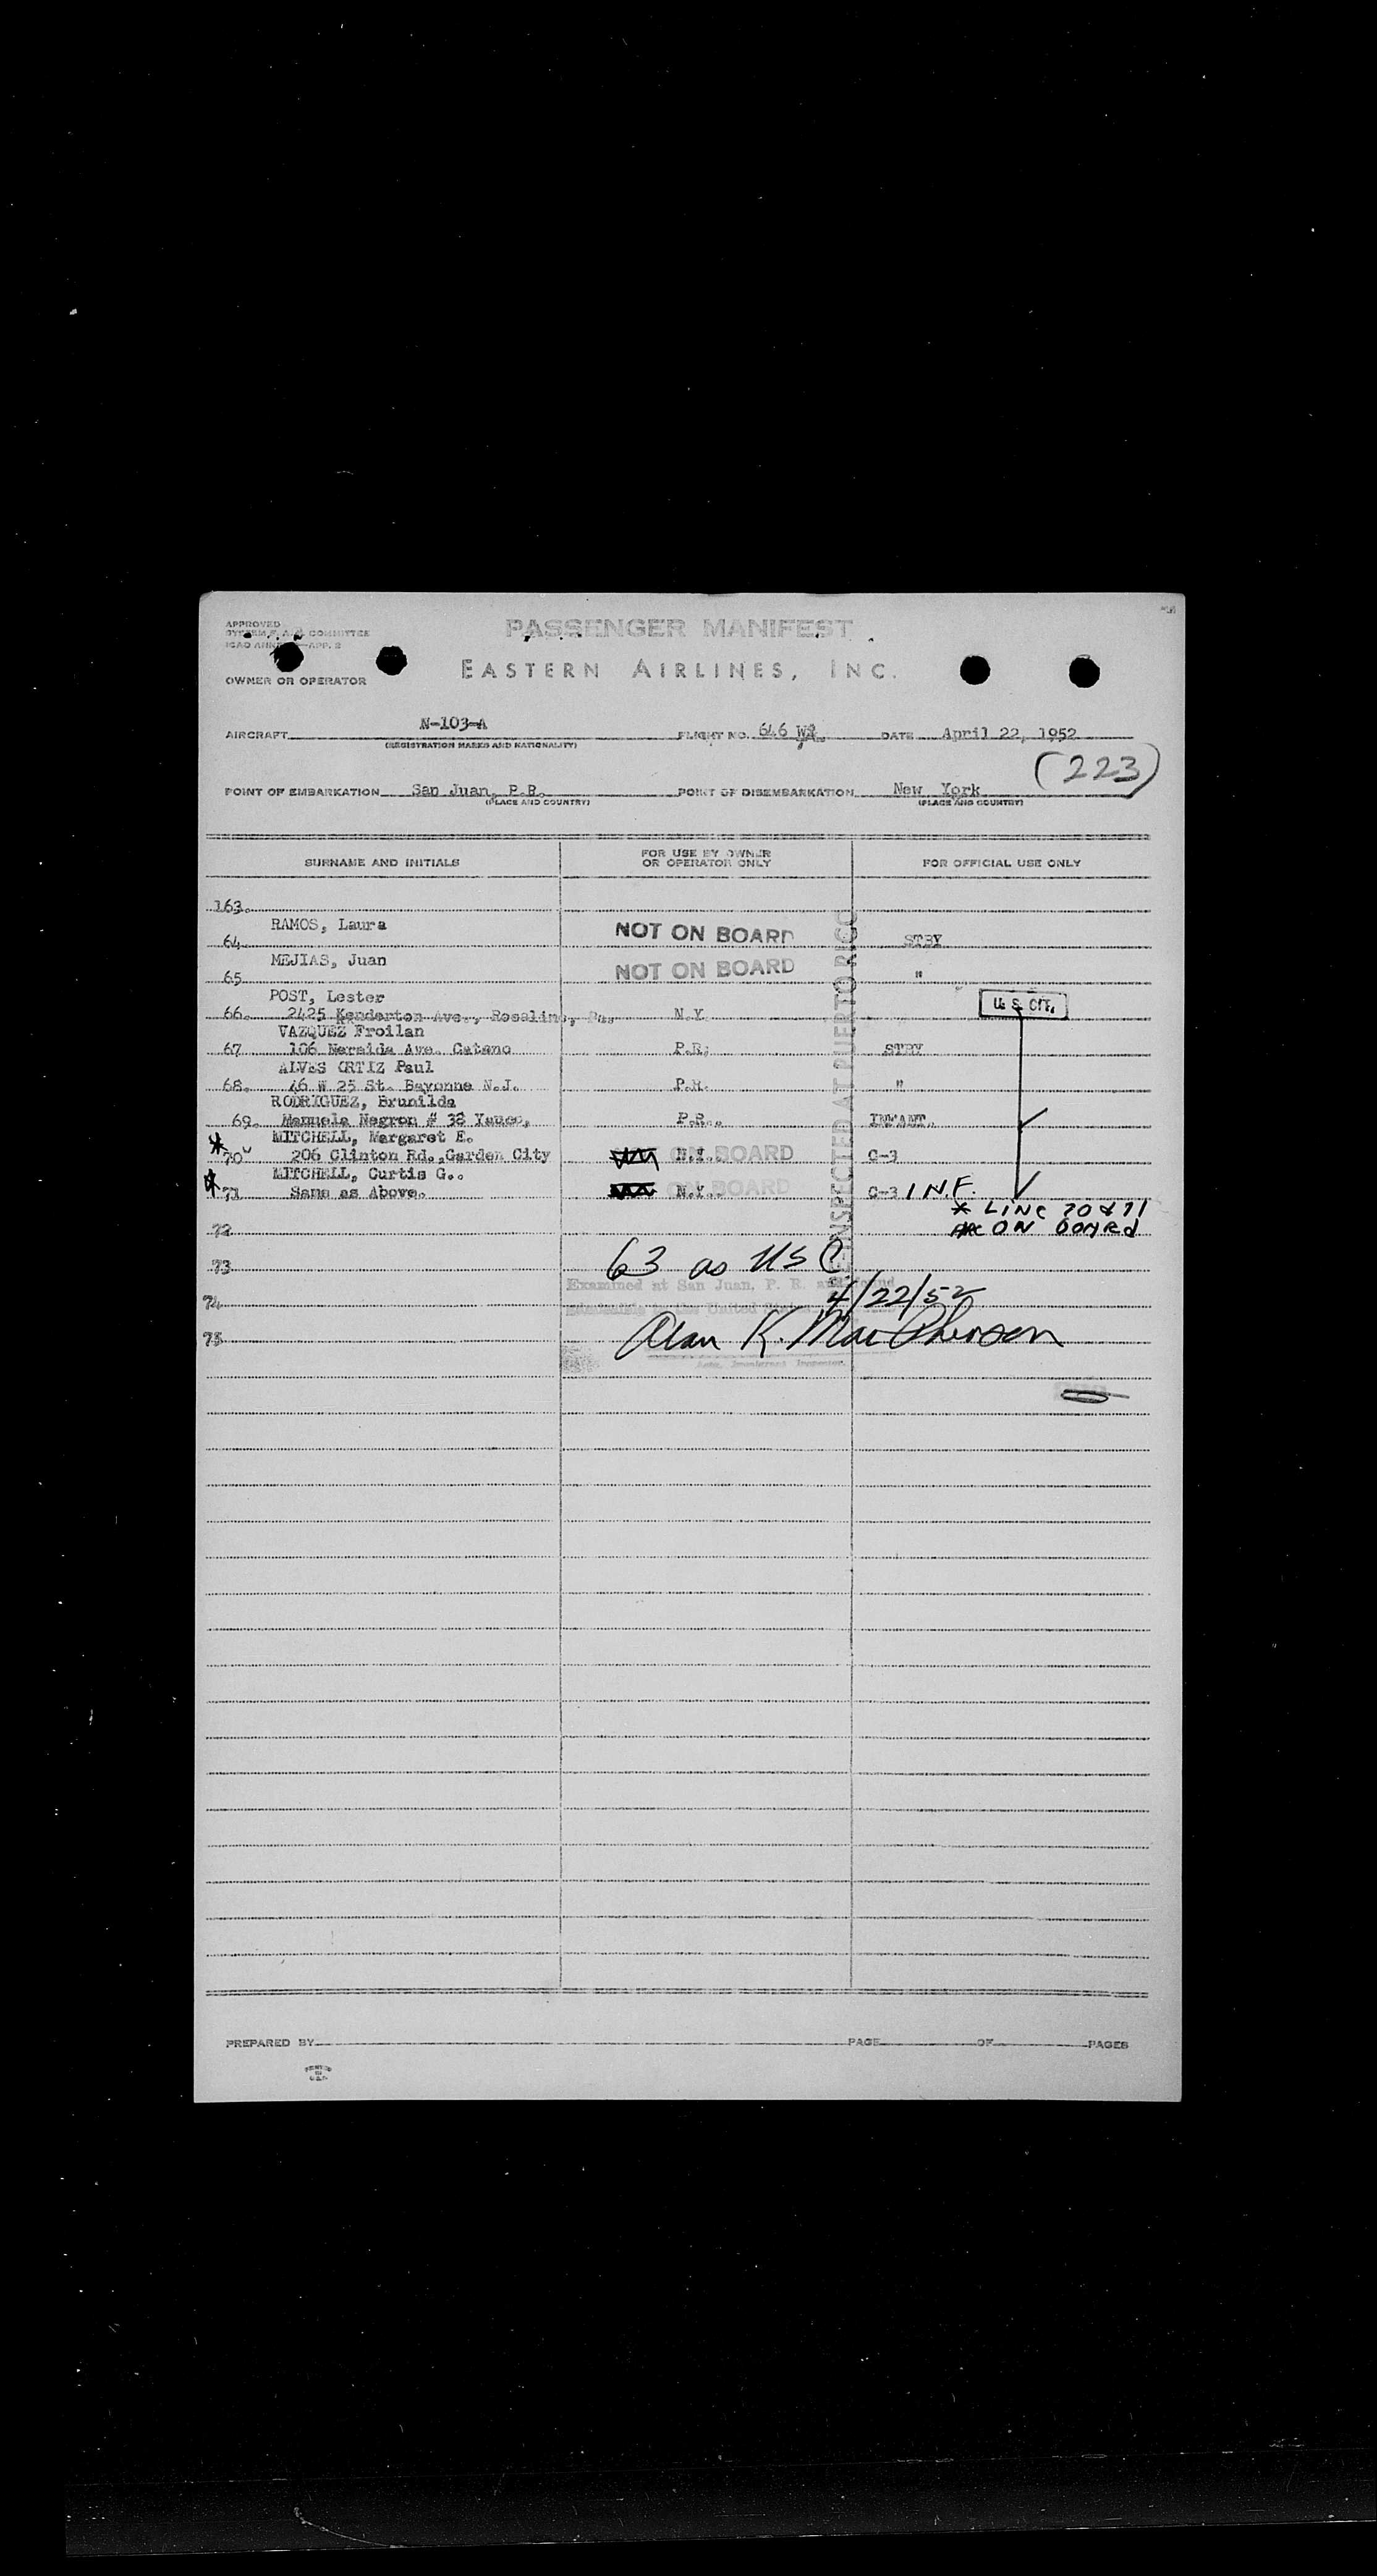 APPROVED
COMMITTEE
APP. 2
PASSENGER MANIFEST
EASTERN AIRLINES, INC.
OWNER OR OPERATOR
AIRCRAFT N-103-A FLIGHT NO. 646 DATE April 22, 1952
(REGISTRATION MARKS AND NATIONALITY)
(223)
POINT OF EMBARKATION San Juan, P.R. POINT OF DISEMBARKATION New York
(PLACE AND COUNTRY) (PLACE AND COUNTRY)
SURNAME AND INITIALS FOR USE BY OWNER OR OPERATOR ONLY FOR OFFICIAL USE ONLY
163.
RAMOS, Laura NOT ON BOARD
64. STBY
MEJIAS, Juan NOT ON BOARD
65. "
POST, Lester U. S. CIT.
66. 2425 Kenderton Ave., Rosaline, Pa. N.Y.
VAZQUEZ Froilan
67 106 Nereida Ave. Catano P.R. STBY
ALVES ORTIZ Paul
68. 46 W 25 St. Bayonne N.J. P.R. "
RODRIGUEZ, Brunilda
69. Manuela Negron # 38 Yauco, P.R. INFANT.
MITCHELL, Margaret E.
* 70 206 Clinton Rd., Garden City N.Y. ON BOARD C-3
MITCHELL, Curtis G..
* 71 Same as Above. N.Y. ON BOARD C-3 INF.
* LINE 70 & 71
ARE ON BOARD
72
73 63 as USC
Examined at San Juan, P. R. and found
74 4/22/52
admissible to the United States
75 Alan K. MacPherson
Immigrant Inspector
INSPECTED AT PUERTO RICO
PREPARED BY PAGE OF PAGES
PRINTED
IN
U.S.A.